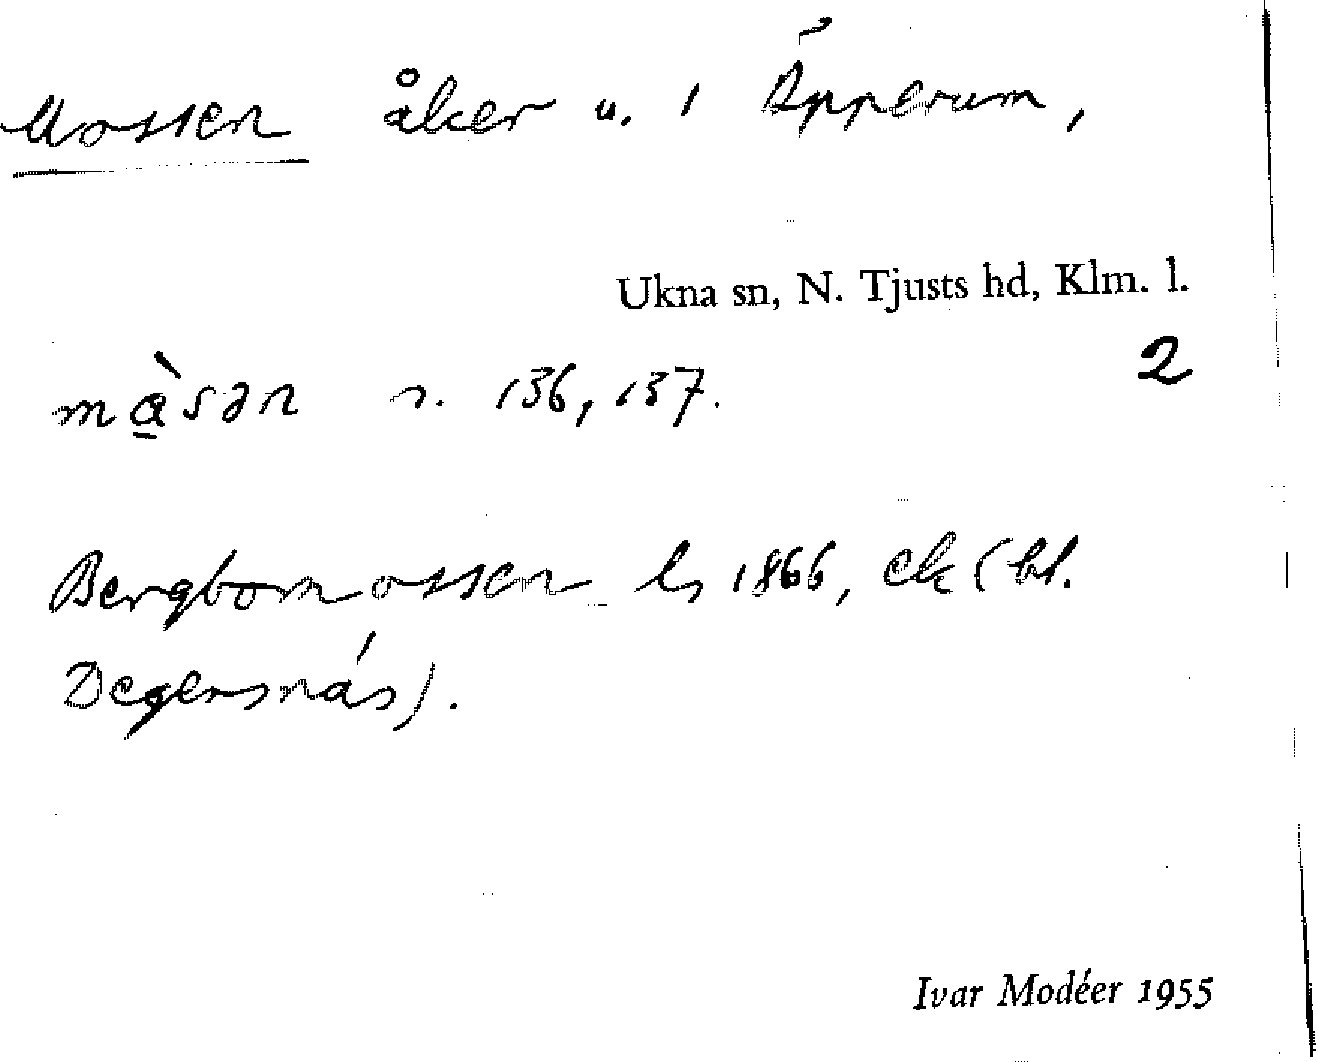 Mossen åker u. i Äpperum,
Ukna sn, N. Tjusts hd, Klm. l.
2
mὰ̱sən s. 136, 137.
Bergbomossen ls 1866, ek (bl.
Degersnäs).
Ivar Modéer 1955